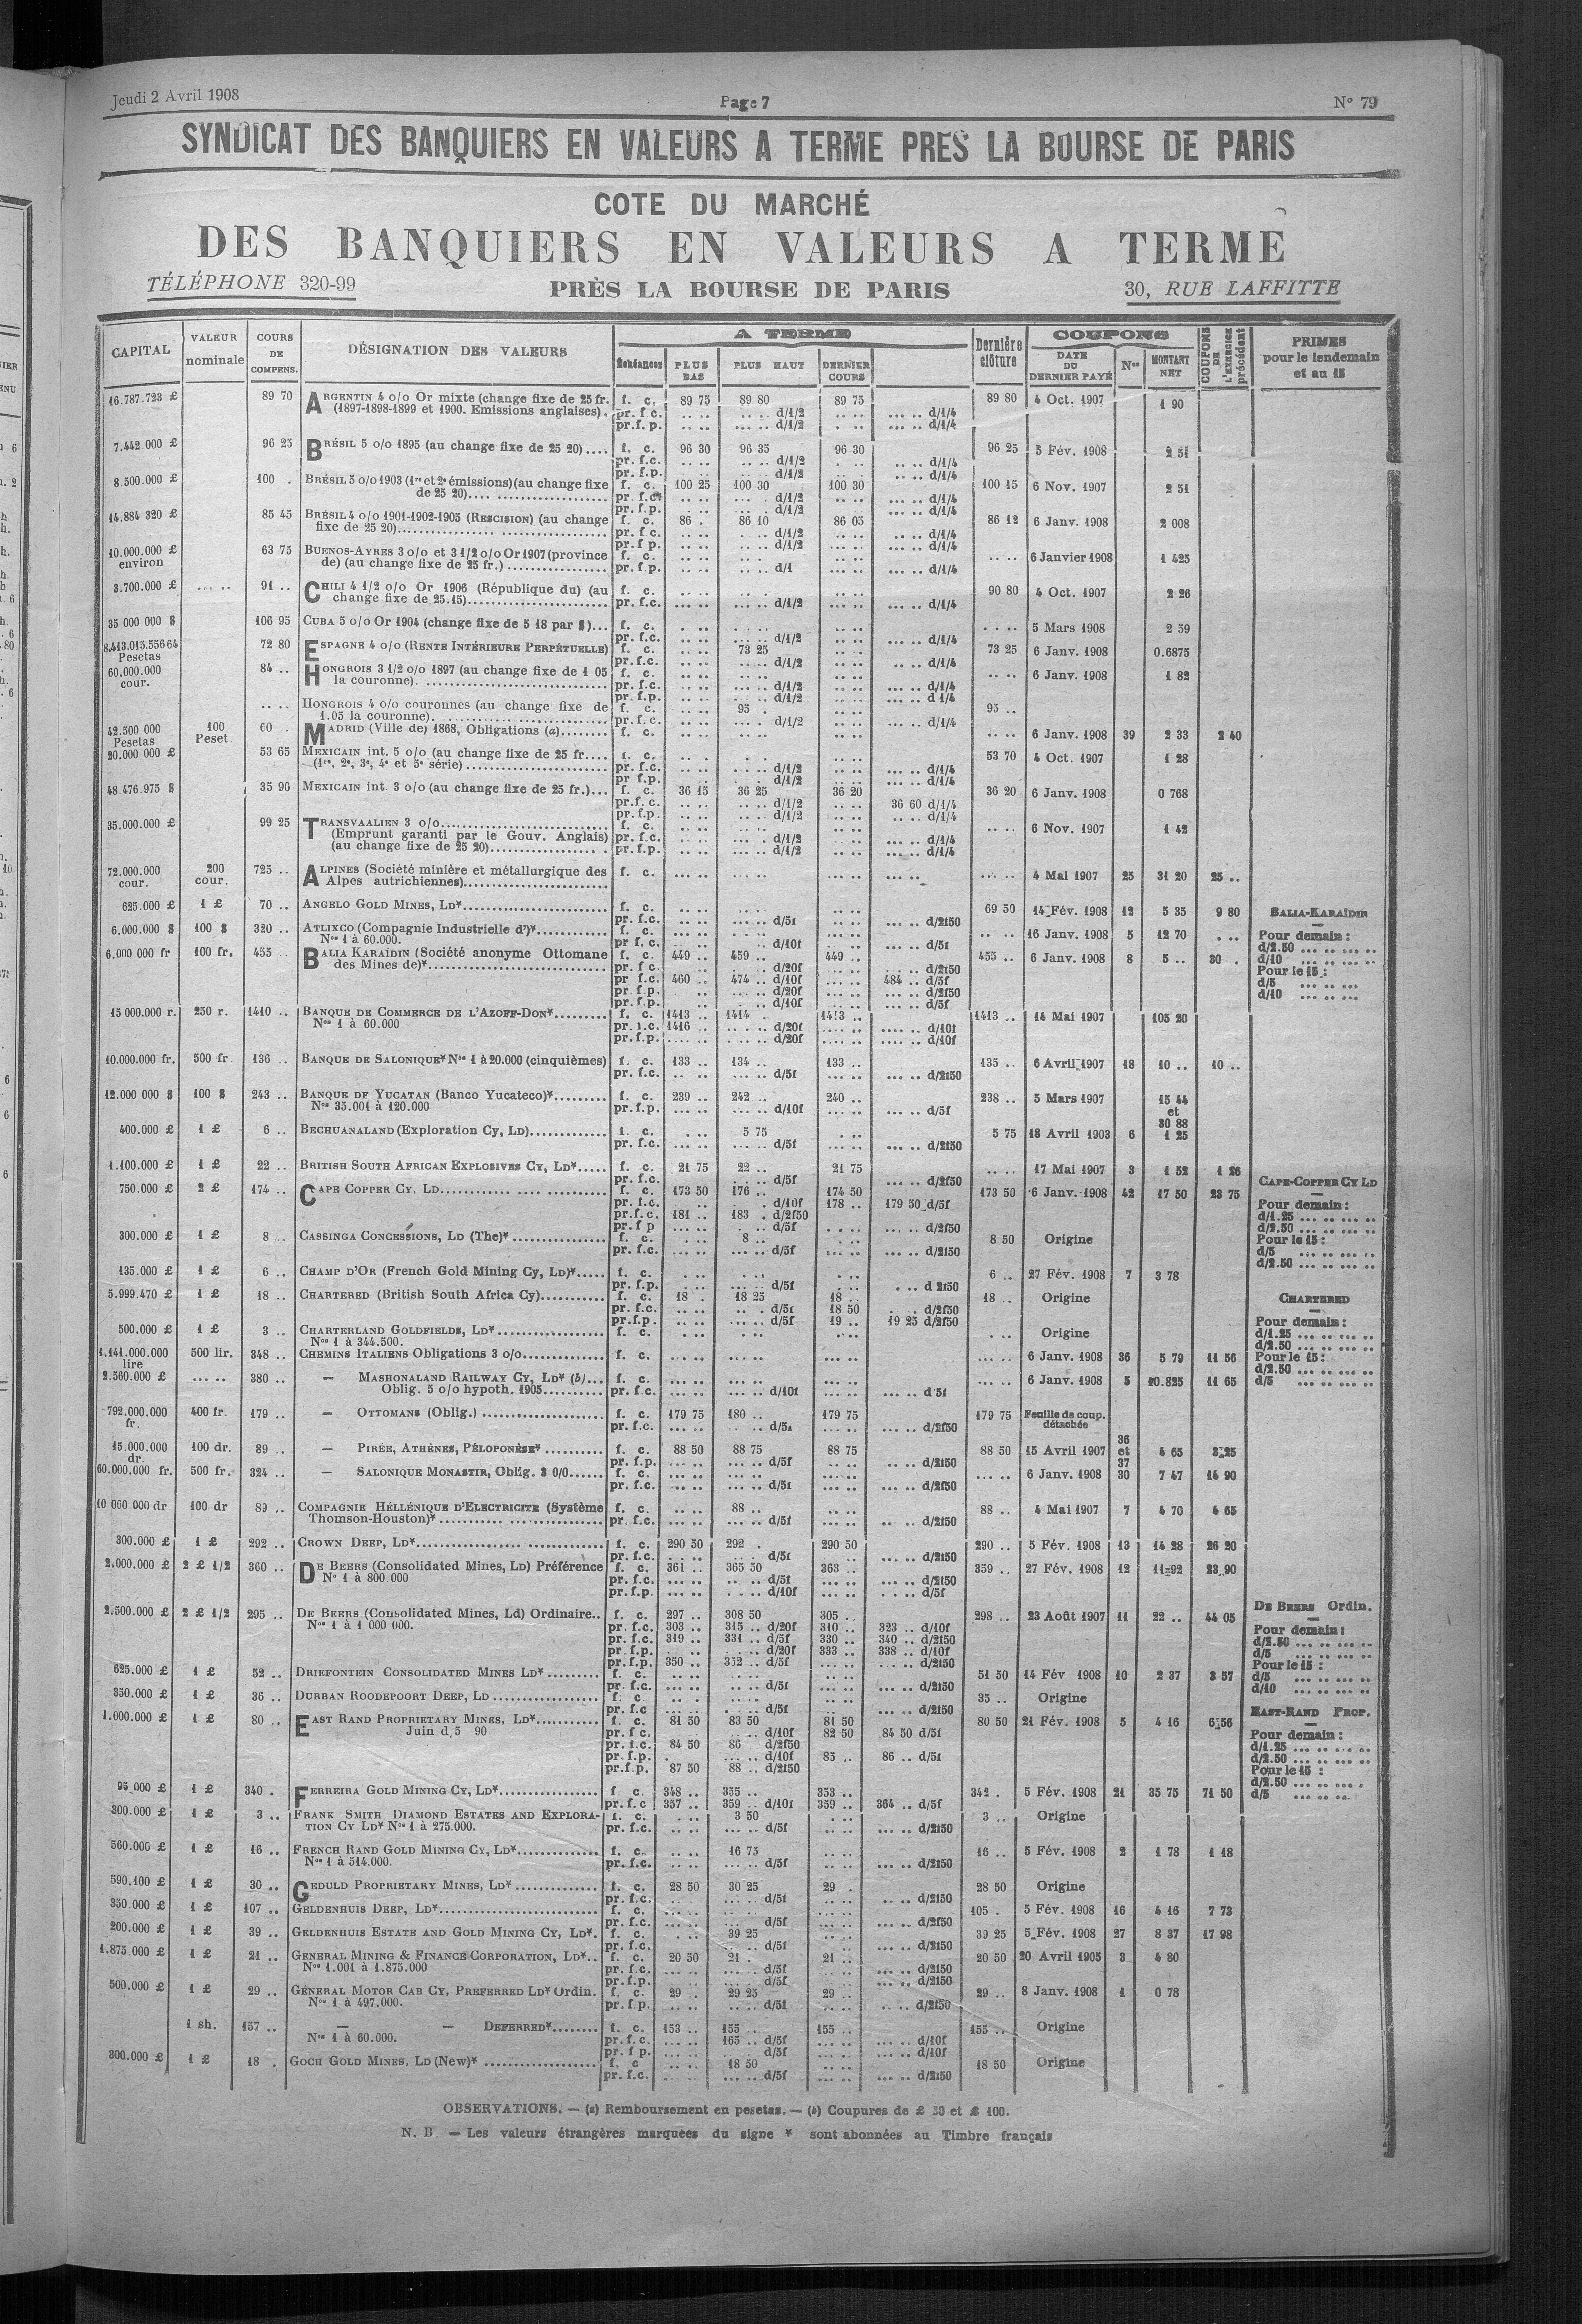 Jeudi 2 Avril 1908 Page 7 N° 79
SYNDICAT DES BANQUIERS EN VALEURS A TERME PRES LA BOURSE DE PARIS
COTE DU MARCHÉ
DES BANQUIERS EN VALEURS A TERME
TÉLÉPHONE 320-99 PRÈS LA BOURSE DE PARIS 30, RUE LAFFITTE
CAPITAL VALEUR nominale COURS DE COMPENS. DÉSIGNATION DES VALEURS A TERME Échéances PLUS BAS PLUS HAUT DERNIER COURS Dernière clôture COUPONS DATE DU DERNIER PAYÉ Nos MONTANT NET COUPONS DE L'EXERCICE précédent PRIMES pour le lendemain et au 15
16.787.723 £ 89 70 ARGENTIN 4 o/o Or mixte (change fixe de 25 fr. f. c. 89 75 89 80 89 75 89 80 4 Oct. 1907 1 90
(1897-1898-1899 et 1900. Emissions anglaises). pr. f c. d/1/2 d/1/4
pr.f. p. d/1/2 d/1/4
7.442.000 £ 96 25 BRÉSIL 5 o/o 1895 (au change fixe de 25 20).... f. c. 96 30 96 35 96 30 96 25 5 Fév. 1908 2 51
pr. f.c. d/1/2 d/1/4
pr. f.p. d/1/2 d/1/4
8.500.000 £ 100 . BRÉSIL 5 o/o 1903 (1re et 2e émissions) (au change fixe f. c. 100 25 100 30 100 30 100 15 6 Nov. 1907 2 51
de 25 20).... pr. f.c. d/1/2 d/1/4
pr. f.p. d/1/2 d/1/4
14.884 320 £ 85 45 BRÉSIL 4 o/o 1901-1902-1905 (RESCISION) (au change f. c. 86 . 86 10 86 05 86 12 6 Janv. 1908 2 008
fixe de 25 20).... pr. f.c. d/1/2 d/1/4
pr. f p. d/1/2 d/1/4
10.000.000 £ environ 63 75 BUENOS-AYRES 3 o/o et 3 1/2 o/o Or 1907 (province f. c. 6 Janvier 1908 1 425
de) (au change fixe de 25 fr.) .... pr. f.p. d/1 d/1/4
3.700.000 £ 91 .. CHILI 4 1/2 o/o Or 1906 (République du) (au f. c. 90 80 4 Oct. 1907 2 26
change fixe de 25.15).... pr. f.c. d/1/2 d/1/4
35 000 000 $ 106 95 CUBA 5 o/o Or 1904 (change fixe de 5 18 par $)... f. c. 5 Mars 1908 2 59
pr. f.c. d/1/2 d/1/4
8.413.015.556 64 Pesetas 72 80 ESPAGNE 4 o/o (RENTE INTÉRIEURE PERPÉTUELLE) f. c. 73 25 73 25 6 Janv. 1908 0.6875
pr. f.c. d/1/2 d/1/4
60.000.000 cour. 84 .. HONGROIS 3 1/2 o/o 1897 (au change fixe de 1 05 f. c. 6 Janv. 1908 1 82
la couronne). .... pr. f.c. d/1/2 d/1/4
pr. f.p. d/1/2 d 1/4
HONGROIS 4 o/o couronnes (au change fixe de f. c. 95 . 95 ..
1.05 la couronne). .... pr. f.c. d/1/2 d/1/4
42.500 000 Pesetas 100 Peset 60 .. MADRID (Ville de) 1868, Obligations (a)........ f. c. 6 Janv. 1908 39 2 33 2 40
20.000 000 £ 53 65 MEXICAIN int. 5 o/o (au change fixe de 25 fr.... f. c. 53 70 4 Oct. 1907 1 28
(1re, 2e, 3e, 4e et 5e série) .... pr. f.c. d/1/2 d/1/4
pr f.p. d/1/2 d/1/4
48.476.975 $ 35 90 MEXICAIN int. 3 o/o (au change fixe de 25 fr.)... f. c. 36 15 36 25 36 20 36 20 6 Janv. 1908 0 768
pr.f. c. d/1/2 36 60 d/1/4
pr.f.p. d/1/2 d/1/4
35.000.000 £ 99 25 TRANSVAALIEN 3 o/o.... f. c. 6 Nov. 1907 1 42
(Emprunt garanti par le Gouv. Anglais) pr. f.c. d/1/2 d/1/4
(au change fixe de 25 20).... pr. f.p. d/1/2 d/1/4
72.000.000 cour. 200 cour. 725 .. ALPINES (Société minière et métallurgique des f. c. 4 Mai 1907 25 31 20 25 ..
Alpes autrichiennes)....
625.000 £ 1 £ 70 .. ANGELO GOLD MINES, LD*.... f. c. 69 50 14 Fév. 1908 12 5 35 9 80 BALIA-KARAÏDIN
pr. f.c. d/5f d/2f50
6.000.000 $ 100 $ 320 .. ATLIXCO (Compagnie Industrielle d')*.... f. c. 16 Janv. 1908 5 12 70 Pour demain :
Nos 1 à 60.000. pr f. c. d/10f d/5f d/2.50
6.000.000 fr 100 fr. 455 .. BALIA KARAÏDIN (Société anonyme Ottomane f. c. 449 .. 459 .. 449 .. 455 .. 6 Janv. 1908 8 5 .. 30 . d/10
des Mines de)*.... pr. f c. d/20f d/2f50 Pour le 15 :
pr f.c. 460 .. 474 .. d/10f 484 .. d/5f d/5
pr. f p. d/20f d/2f50 d/10
pr. f.p. d/10f d/5f
15 000.000 r. 250 r. 1410 .. BANQUE DE COMMERCE DE L'AZOFF-DON*.... f. c. 1413 .. 1414 . 1413 .. 1413 .. 14 Mai 1907 105 20
Nos 1 à 60.000 pr. f.c. 1416 .. d/20f d/10f
pr.f.p. d/20f d/10f
10.000.000 fr. 500 fr 136 .. BANQUE DE SALONIQUE* Nos 1 à 20.000 (cinquièmes) f. c. 133 .. 134 .. 133 .. 135 .. 6 Avril 1907 18 10 .. 10 ..
pr. f.c. d/5f d/2f50
12.000 000 $ 100 $ 243 .. BANQUE DE YUCATAN (Banco Yucateco)*.... f. c. 239 .. 242 .. 240 .. 238 .. 5 Mars 1907 15 44 et 30 88
Nos 35.001 à 120.000 pr. f.p. d/10f d/5f
400.000 £ 1 £ 6 .. BECHUANALAND (Exploration Cy, LD).... f. c. 5 75 5 75 18 Avril 1903 6 1 25
pr. f.c. d/5f d/2f50
1.100.000 £ 1 £ 22 .. BRITISH SOUTH AFRICAN EXPLOSIVES CY, LD*..... f. c. 21 75 22 .. 21 75 17 Mai 1907 3 1 52 1 26
pr. f.c. d/5f d/2f50
750.000 £ 2 £ 174 .. CAPE COPPER CY, LD.... f. c. 173 50 176 .. 174 50 173 50 6 Janv. 1908 42 17 50 23 75 CAPE-COPPER CY LD
pr. f.c. d/10f 178 .. 179 50 d/5f Pour demain :
pr. f. c. 181 .. 183 . d/2f50 d/1.25
pr. f p d/5f d/2f50 d/2.50
300.000 £ 1 £ 8 .. CASSINGA CONCESSIONS, LD (The)* .... f. c. 8 .. 8 50 Origine Pour le 15 :
pr. f.c. d/5f d/2f50 d/5
d/2.50
135.000 £ 1 £ 6 .. CHAMP D'OR (French Gold Mining Cy, LD)*..... f. c. 6 .. 27 Fév. 1908 7 3 78
pr. f.p. d/5f d 2f50
5.999.470 £ 1 £ 18 .. CHARTERED (British South Africa Cy).... f. c. 18 . 18 25 18 .. 18 .. Origine CHARTERED
pr. f.c. d/5f 18 50 d/2f50
pr.f.p. d/5f 19 .. 19 25 d/2f50 Pour demain :
500.000 £ 1 £ 3 .. CHARTERLAND GOLDFIELDS, LD*.... f. c. Origine d/1.25
Nos 1 à 344.500. d/2.50
1.141.000.000 lire 500 lir. 348 .. CHEMINS ITALIENS Obligations 3 o/o.... f. c. 6 Janv. 1908 36 5 79 11 56 Pour le 15 :
d/2.50
2.560.000 £ 380 .. — MASHONALAND RAILWAY CY, LD* (b)... f. c. 6 Janv. 1908 5 10.825 11 65 d/5
Oblig. 5 o/o hypoth. 1905.... pr. f.c. d/10f d 5f
792.000.000 fr. 400 fr. 179 .. — OTTOMANS (Oblig.) .... f. c. 179 75 180 .. 179 75 179 75 Feuille de coup. détachée
pr. f.c. d/5f d/2f50
15.000.000 dr. 100 dr. 89 .. — PIRÉE, ATHÈNES, PÉLOPONÈSE* .... f. c. 88 50 88 75 88 75 88 50 15 Avril 1907 36 et 37 4 65 3,25
pr. f.p. d/5f d/2f50
60.000.000 fr. 500 fr. 324 .. — SALONIQUE MONASTIR, Oblig. 3 0/0...... f. c. 6 Janv. 1908 30 7 47 14 90
pr. f.c. d/5f d/2f50
10 000 000 dr 100 dr 89 .. COMPAGNIE HÉLLÉNIQUE D'ELECTRICITE (Système f. c. 88 .. 88 .. 4 Mai 1907 7 4 70 4 65
Thomson-Houston)*.... pr. f.c. d/5f d/2f50
300.000 £ 1 £ 292 .. CROWN DEEP, LD*.... f. c. 290 50 292 . 290 50 290 .. 5 Fév. 1908 13 14 28 26 20
pr. f.c. d/5f d/2f50
2.000.000 £ 2 £ 1/2 360 .. DE BEERS (Consolidated Mines, LD) Préférence f. c. 361 .. 365 50 363 .. 359 .. 27 Fév. 1908 12 11-92 23,90
No 1 à 800 000 pr. f.c. d/5f d/2f50
pr. f.p. d/10f d/5f
2.500.000 £ 2 £ 1/2 295 .. DE BEERS (Consolidated Mines, Ld) Ordinaire.. f. c. 297 .. 308 50 305 .. 298 .. 23 Août 1907 11 22 .. 44 05 DE BEERS Ordin.
Nos 1 à 1 000 000. pr. f.c. 303 .. 315 .. d/20f 310 .. 323 .. d/10f Pour demain :
pr. f.c. 319 .. 331 .. d/5f 330 .. 340 .. d/2f50 d/2.50
pr. f.p. d/20f 333 .. 338 .. d/10f d/5
pr. f.p. 350 .. 352 .. d/5f d/2f50 Pour le 15 :
625.000 £ 1 £ 52 .. DRIEFONTEIN CONSOLIDATED MINES LD* .... f. c. 51 50 14 Fév 1908 10 2 37 3 57 d/5
pr. f.c. d/5f d/2f50 d/10
350.000 £ 1 £ 36 .. DURBAN ROODEPOORT DEEP, LD .... f. c. 35 .. Origine
pr. f.c d/5f d/2f50 EAST-RAND PROP.
1.000.000 £ 1 £ 80 .. EAST RAND PROPRIETARY MINES, LD*.... f. c. 81 50 83 50 81 50 80 50 21 Fév. 1908 5 4 16 6,56
Juin d 5 90 pr. f c. d/10f 82 50 84 50 d/5f Pour demain :
pr. f.c. 84 50 86 d/2f50 d/1.25
pr. f.p. d/10f 85 .. 86 .. d/5f d/2.50
pr. f.p. 87 50 88 .. d/2f50 Pour le 15 :
d/2.50
95 000 £ 1 £ 340 . FERREIRA GOLD MINING CY, LD*.... f. c. 348 .. 355 .. 353 .. 342 . 5 Fév. 1908 21 35 75 71 50 d/5
pr. f.c 357 .. 359 .. d/10f 359 .. 364 .. d/5f
300.000 £ 1 £ 3 .. FRANK SMITH DIAMOND ESTATES AND EXPLORA- f. c. 3 50 3 .. Origine
TION CY LD* Nos 1 à 275.000. pr. f.c. d/5f d/2f50
560.000 £ 1 £ 16 .. FRENCH RAND GOLD MINING CY, LD*.... f. c. 16 75 16 .. 5 Fév. 1908 2 1 78 1 18
Nos 1 à 514.000. pr. f.c. d/5f d/2f50
590.100 £ 1 £ 30 .. GEDULD PROPRIETARY MINES, LD* .... f. c. 28 50 30 25 29 . 28 50 Origine
pr. f.c. d/5f d/2f50
350.000 £ 1 £ 107 .. GELDENHUIS DEEP, LD*.... f. c. 105 . 5 Fév. 1908 16 4 16 7 73
pr. f.c. d/5f d/2f50
200.000 £ 1 £ 39 .. GELDENHUIS ESTATE AND GOLD MINING CY, LD*. f. c. 39 25 39 25 5 Fév. 1908 27 8 37 17 98
pr. f.c. d/5f d/2f50
1.875.000 £ 1 £ 21 .. GENERAL MINING & FINANCE CORPORATION, LD*.. f. c. 20 50 21 . 21 .. 20 50 20 Avril 1905 3 4 80
Nos 1.001 à 1.875.000 pr. f.c. d/5f d/2f50
pr. f.p. d/5f d/2f50
500.000 £ 1 £ 29 .. GÉNÉRAL MOTOR CAB CY, PREFERRED LD* Ordin. f. c. 29 . 29 25 29 .. 29 .. 8 Janv. 1908 1 0 78
Nos 1 à 497.000. pr. f.p. d/5f d/2f50
1 sh. 157 .. — — DEFERRED*........ f. c. 153 .. 155 .. 155 .. 155 .. Origine
Nos 1 à 60.000. pr. f.c. 165 .. d/5f d/10f
pr. f p. d/5f d/10f
300.000 £ 1 £ 18 . GOCH GOLD MINES, LD (New)* .... f. c 18 50 18 50 Origine
pr. f.c. d/5f d/2f50
OBSERVATIONS. — (a) Remboursement en pesetas. — (b) Coupures de £ 50 et £ 100.
N. B — Les valeurs étrangères marquées du signe * sont abonnées au Timbre français